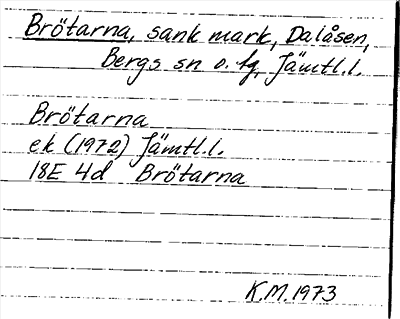 Brötarna, sank mark, Dalåsen,
Bergs sn o. fg, Jämtl.l.
Brötarna
ek (1972) Jämtl.l.
18E 4d Brötarna
K.M. 1973